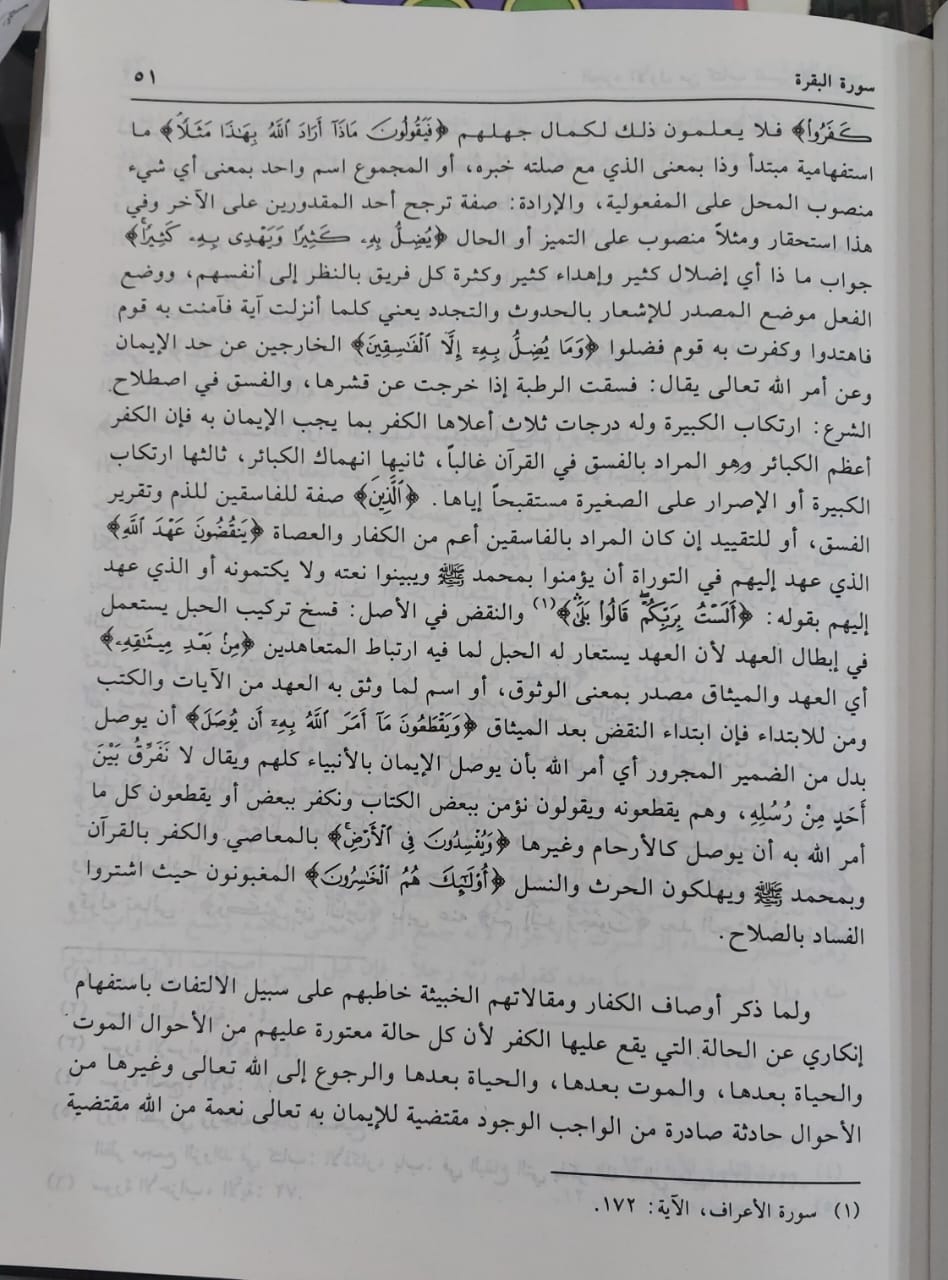 سورة البقرة ٥١
كَفَرُواْ﴾ فلا يعلمون ذلك لكمال جهلهم ﴿فَيَقُولُونَ مَاذَآ أَرَادَ ٱللَّهُ بِهَٰذَا مَثَلًاۘ﴾ ما
استفهامية مبتدأ وذا بمعنى الذي مع صلته خبره، أو المجموع اسم واحد بمعنى أي شيء
منصوب المحل على المفعولية، والإرادة: صفة ترجح أحد المقدورين على الآخر وفي
هذا استحقار ومثلاً منصوب على التميز أو الحال ﴿يُضِلُّ بِهِۦ كَثِيرًا وَيَهْدِى بِهِۦ كَثِيرًاۚ﴾
جواب ما ذا أي إضلال كثير وإهداء كثير وكثرة كل فريق بالنظر إلى أنفسهم، ووضع
الفعل موضع المصدر للإشعار بالحدوث والتجدد يعني كلما أنزلت آية فآمنت به قوم
فاهتدوا وكفرت به قوم فضلوا ﴿وَمَا يُضِلُّ بِهِۦٓ إِلَّا ٱلْفَٰسِقِينَ﴾ الخارجين عن حد الإيمان
وعن أمر الله تعالى يقال: فسقت الرطبة إذا خرجت عن قشرها، والفسق في اصطلاح
الشرع: ارتكاب الكبيرة وله درجات ثلاث أعلاها الكفر بما يجب الإيمان به فإن الكفر
أعظم الكبائر وهو المراد بالفسق في القرآن غالباً، ثانيها انهماك الكبائر، ثالثها ارتكاب
الكبيرة أو الإصرار على الصغيرة مستقبحاً إياها. ﴿ٱلَّذِينَ﴾ صفة للفاسقين للذم وتقرير
الفسق، أو للتقييد إن كان المراد بالفاسقين أعم من الكفار والعصاة ﴿يَنقُضُونَ عَهْدَ ٱللَّهِ﴾
الذي عهد إليهم في التوراة أن يؤمنوا بمحمد ﷺ ويبينوا نعته ولا يكتمونه أو الذي عهد
إليهم بقوله: ﴿أَلَسْتُ بِرَبِّكُمْۖ قَالُواْ بَلَىٰۛ﴾(١) والنقض في الأصل: فسخ تركيب الحبل يستعمل
في إبطال العهد لأن العهد يستعار له الحبل لما فيه ارتباط المتعاهدين ﴿مِنۢ بَعْدِ مِيثَٰقِهِۦ﴾
أي العهد والميثاق مصدر بمعنى الوثوق، أو اسم لما وثق به العهد من الآيات والكتب
ومن للابتداء فإن ابتداء النقض بعد الميثاق ﴿وَيَقْطَعُونَ مَآ أَمَرَ ٱللَّهُ بِهِۦٓ أَن يُوصَلَ﴾ أن يوصل
بدل من الضمير المجرور أي أمر الله بأن يوصل الإيمان بالأنبياء كلهم ويقال لا نَفَرِّقُ بَيْنَ
أَحَدٍ مِنْ رُسُلِهِ، وهم يقطعونه ويقولون نؤمن ببعض الكتاب ونكفر ببعض أو يقطعون كل ما
أمر الله به أن يوصل كالأرحام وغيرها ﴿وَيُفْسِدُونَ فِى ٱلْأَرْضِۚ﴾ بالمعاصي والكفر بالقرآن
وبمحمد ﷺ ويهلكون الحرث والنسل ﴿أُوْلَٰٓئِكَ هُمُ ٱلْخَٰسِرُونَ﴾ المغبونون حيث اشتروا
الفساد بالصلاح.
ولما ذكر أوصاف الكفار ومقالاتهم الخبيثة خاطبهم على سبيل الالتفات باستفهام
إنكاري عن الحالة التي يقع عليها الكفر لأن كل حالة معتورة عليهم من الأحوال الموت
والحياة بعدها، والموت بعدها، والحياة بعدها والرجوع إلى الله تعالى وغيرها من
الأحوال حادثة صادرة من الواجب الوجود مقتضية للإيمان به تعالى نعمة من الله مقتضية
(١) سورة الأعراف، الآية: ١٧٢.